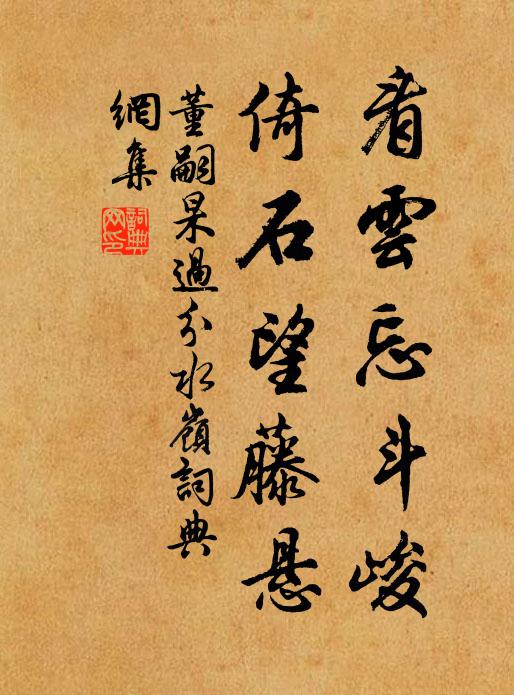 看雲忘斗峻
倚石望藤悬
董嗣杲過分水嶺詞典
網集
詞典網印